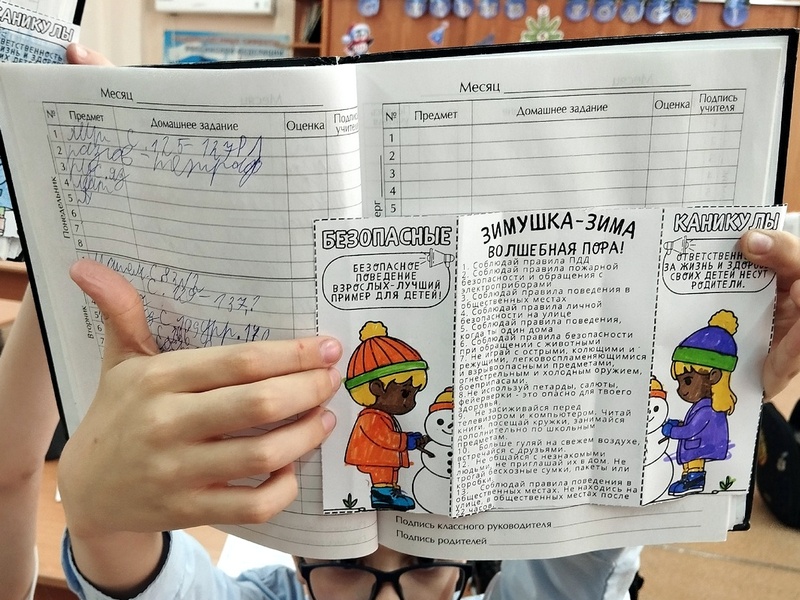 КАНИКУЛЫ
Месяц
№ Предмет Домашнее задание Оценка
1
2
3
4
5
7
8
Понедельник
Вторник
Месяц
№ Предмет Домашнее задание Оценка Подпись учителя
1
2
3
4
5
БЕЗОПАСНЫЕ
БЕЗОПАСНОЕ
ПОВЕДЕНИЕ
ВЗРОСЛЫХ-ЛУЧШИЙ
ПРИМЕР ДЛЯ ДЕТЕЙ!
ЗИМУШКА-ЗИМА
ВОЛШЕБНАЯ ПОРА!
1. Соблюдай правила ПДД
2. Соблюдай правила пожарной
безопасности и обращения с
электроприборами
3. Соблюдай правила поведения в
общественных местах
4. Соблюдай правила личной
безопасности на улице
5. Соблюдай правила поведения,
когда ты один дома
6. Соблюдай правила безопасности
при обращении с животными
7. Не играй с острыми, колющими и
режущими, легковоспламеняющимися
и взрывоопасными предметами,
огнестрельным и холодным оружием,
боеприпасами.
8. Не используй петарды, салюты,
фейерверки - это опасно для твоего
здоровья.
Не засиживайся перед
телевизором и компьютером. Читай
книги, посещай кружки, занимайся
дополнительно по школьным
предметам.
10. Больше гуляй на свежем воздухе,
встречайся с друзьями.
12. Не общайся с незнакомыми
людьми, не приглашай их в дом. Не
трогай бесхозные сумки, пакеты или
коробки.
Соблюдай правила поведения в
общественных местах. Не находись на
улице и общественных местах после
КАНИКУЛЫ
ОТВЕТСТВЕННОСТЬ
ЗА ЖИЗНЬ И
СВОИХ ДЕТЕЙ НЕСУТ
РОДИТЕЛИ.
Подпись классного руководителя
Подпись родителей